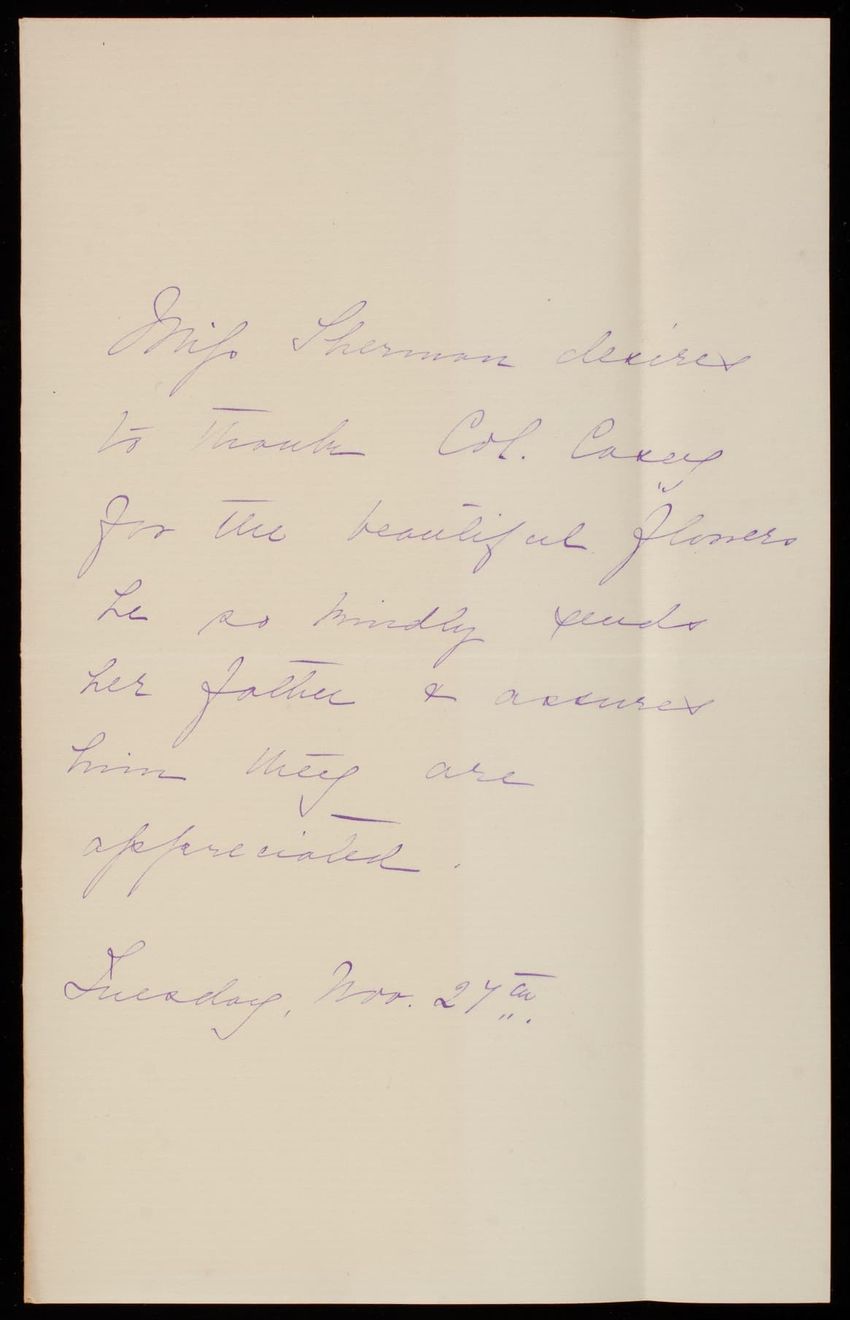 Miss Sherman desires
to thank Col. Casey
for the beautiful flowers
he so kindly sends
her father & assures
him they are
appreciated.
Tuesday, Nov. 27th.